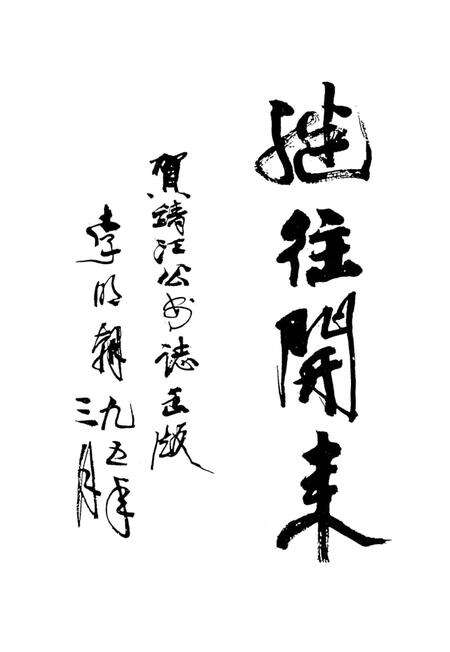 继往開来
賀靖江公安誌出版
李明朝
九五年
三月